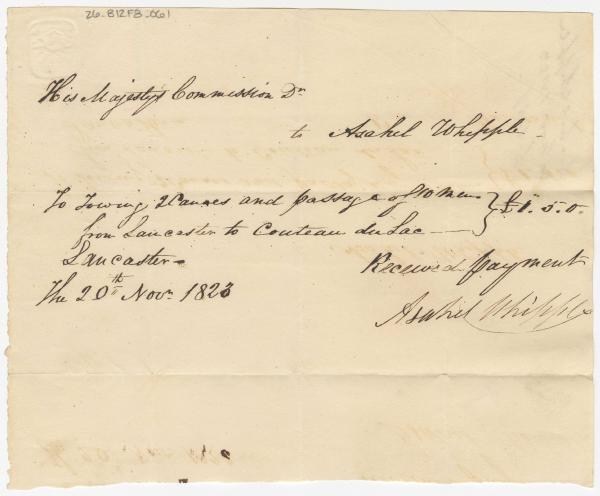 26-B12FB-061
His Majestys Commission Dr.
to Asahel Whipple
To Towing 2 Canoes and passage of 10 men } £1.5.0.
from Lancaster to Couteau du Lac
Lancaster
The 20th Novr. 1823
Received payment
Asahel Whipple